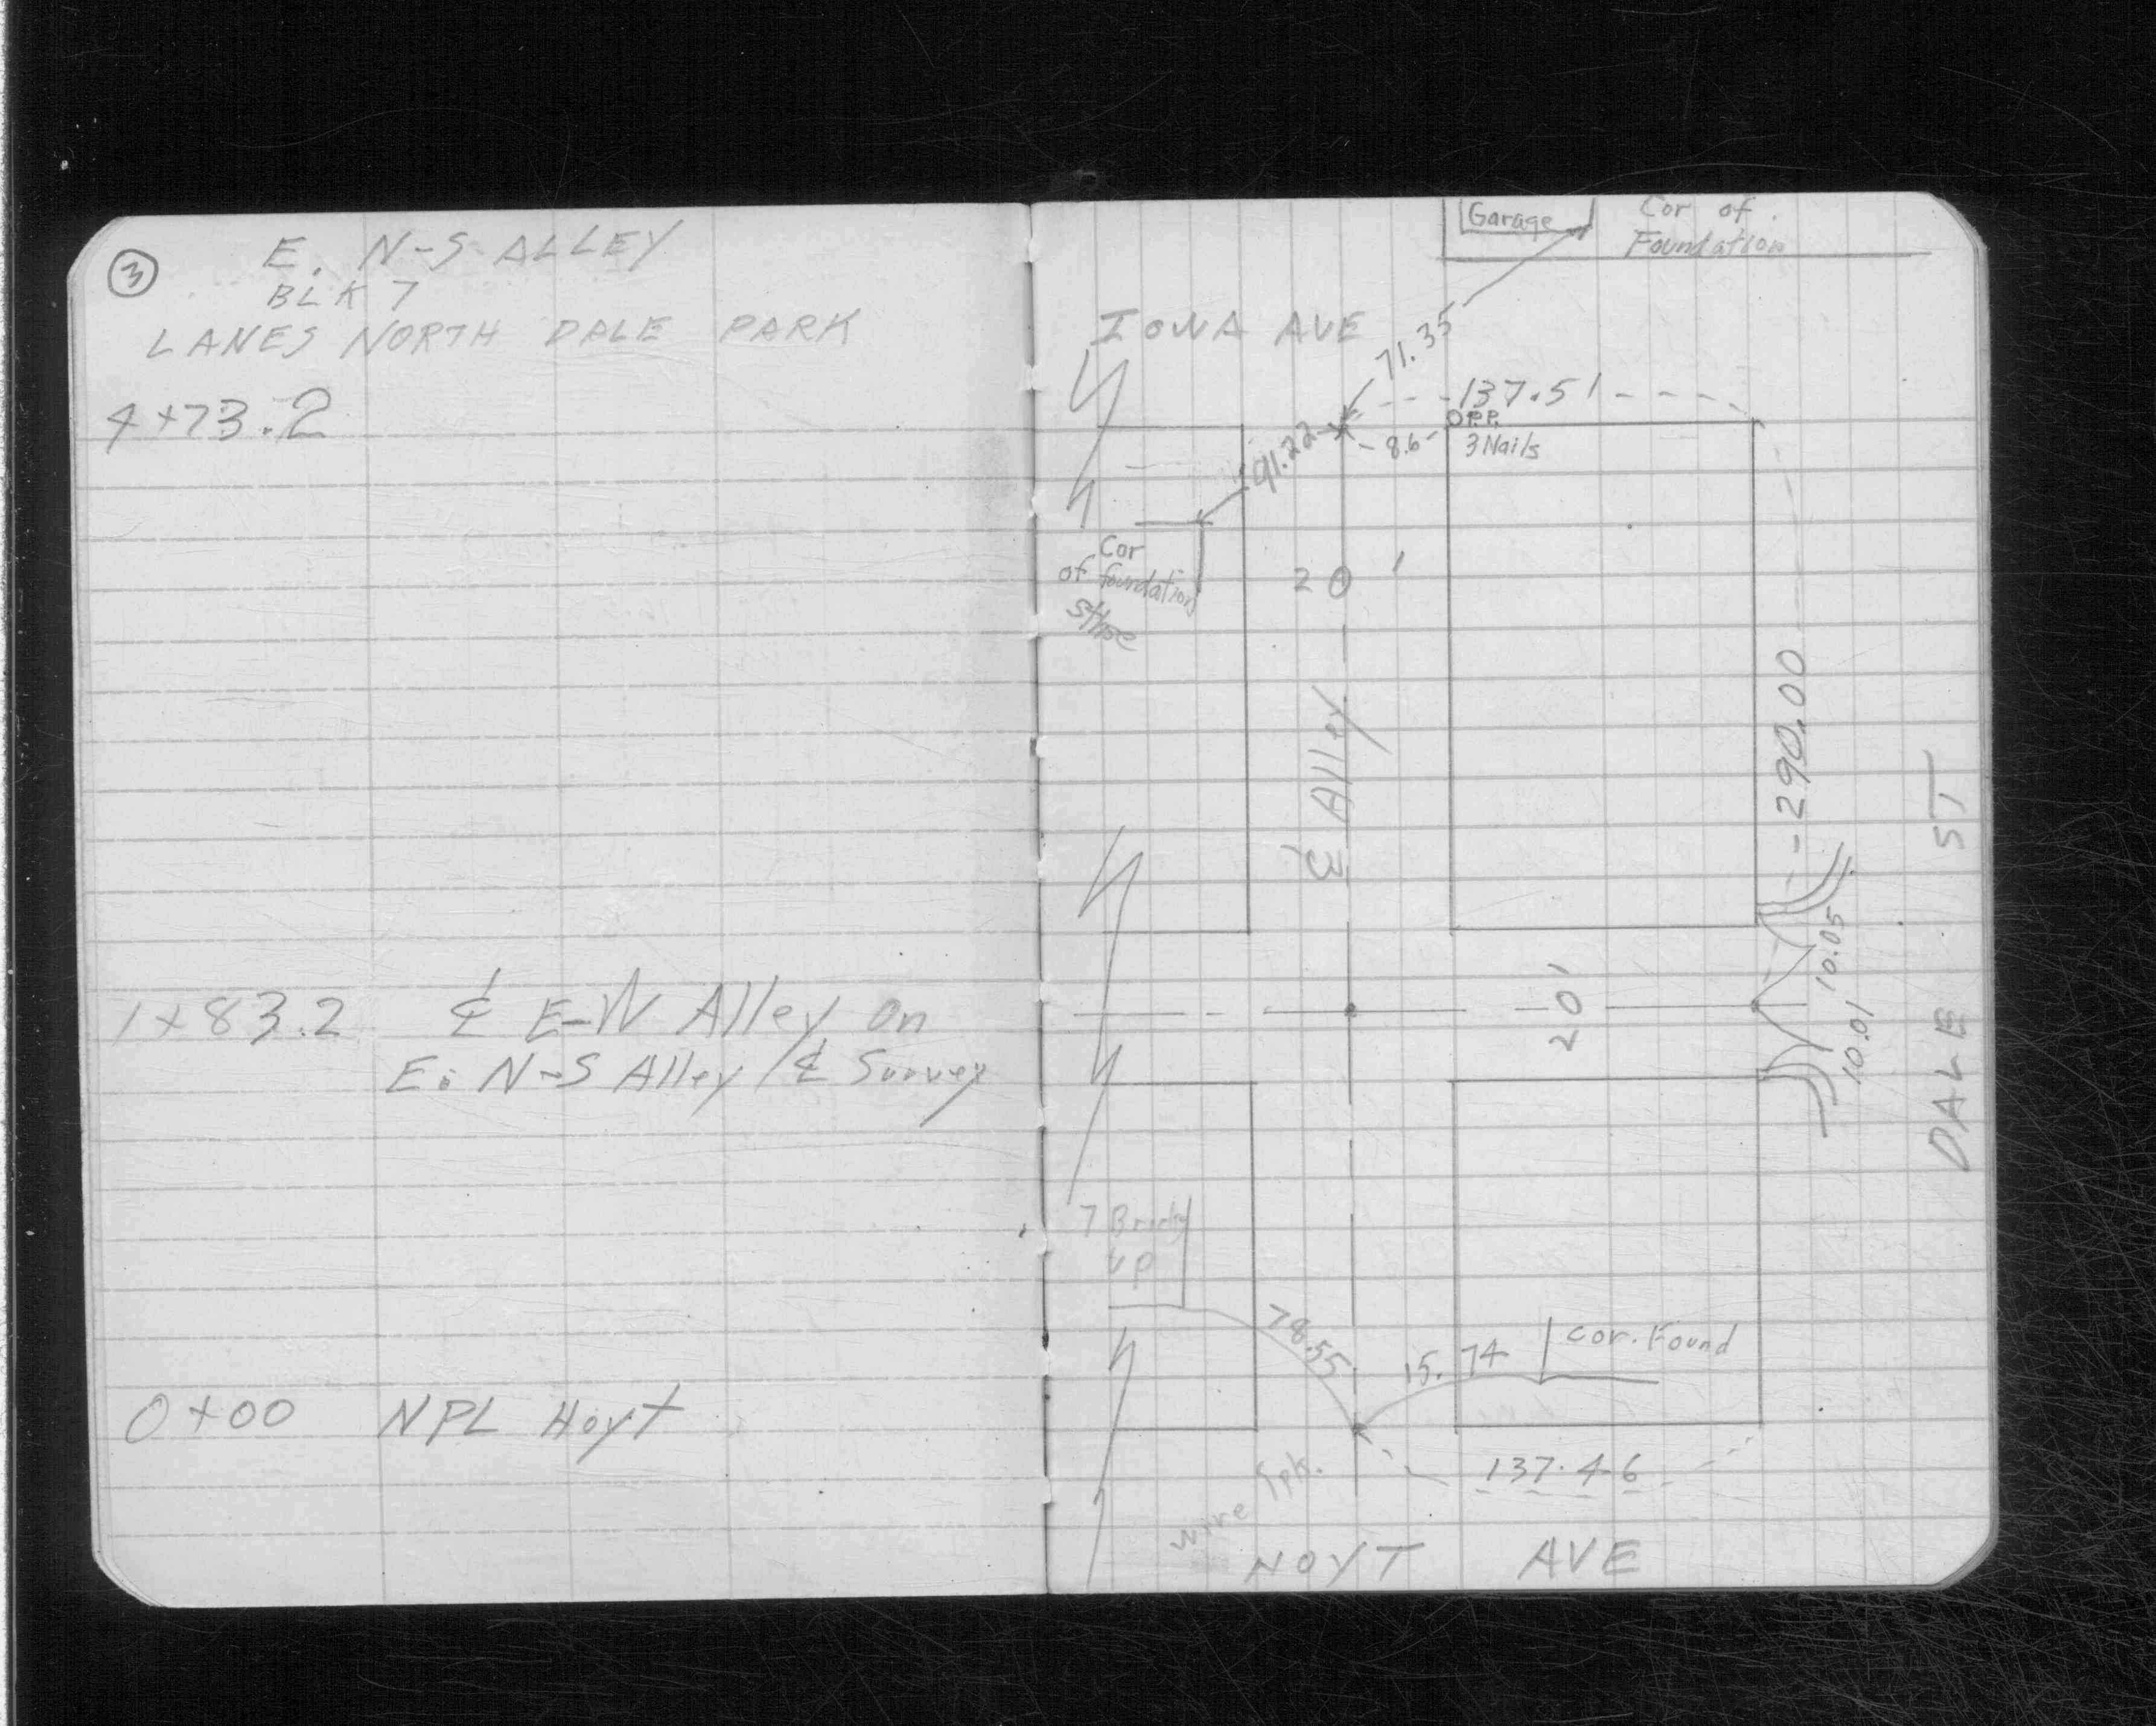 3
E. N-S ALLEY
BLK 7
LANES NORTH DALE PARK
4+73.2
1+83.2 ℄ E-W Alley On
E. N-S Alley / ℄ Survey
0+00 NPL Hoyt
Garage
Cor of
Foundation
IOWA AVE
71.35
137.51
O P.P.
3 Nails
8.6
91.22
Cor
of foundation
20'
℄ Alley
290.00
DALE ST
10.05
10.01
20'
7 Bricks
up
78.55
15.74
cor. Found
137.46
wire Spk.
HOYT AVE